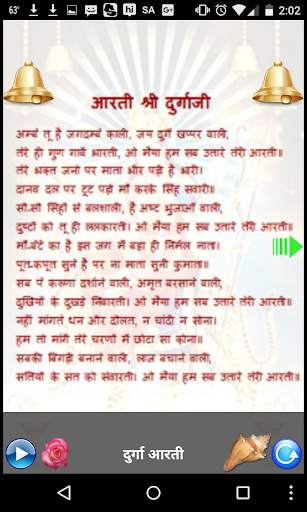 63° SA 2:02
आरती श्री दुर्गाजी
अम्बे तू है जगदम्बे काली, जय दुर्गे खप्पर वाली,
तेरे ही गुण गावें भारती, ओ मैया हम सब उतारे तेरी आरती॥
तेरे भक्त जनो पर माता भीर पड़ी है भारी।
दानव दल पर टूट पड़ो माँ करके सिंह सवारी॥
सौ-सौ सिहों से बलशाली, है अष्ट भुजाओं वाली,
दुष्टों को तू ही ललकारती। ओ मैया हम सब उतारे तेरी आरती॥
माँ-बेटे का है इस जग में बड़ा ही निर्मल नाता।
पूत-कपूत सुने है पर ना माता सुनी कुमाता॥
सब पे करूणा दर्शाने वाली, अमृत बरसाने वाली,
दुखियों के दुखड़े निवारती। ओ मैया हम सब उतारे तेरी आरती॥
नहीं मांगते धन और दौलत, न चांदी न सोना।
हम तो मांगें तेरे चरणों में छोटा सा कोना॥
सबकी बिगड़ी बनाने वाली, लाज बचाने वाली,
सतियों के सत को सवांरती। ओ मैया हम सब उतारे तेरी आरती॥
दुर्गा आरती